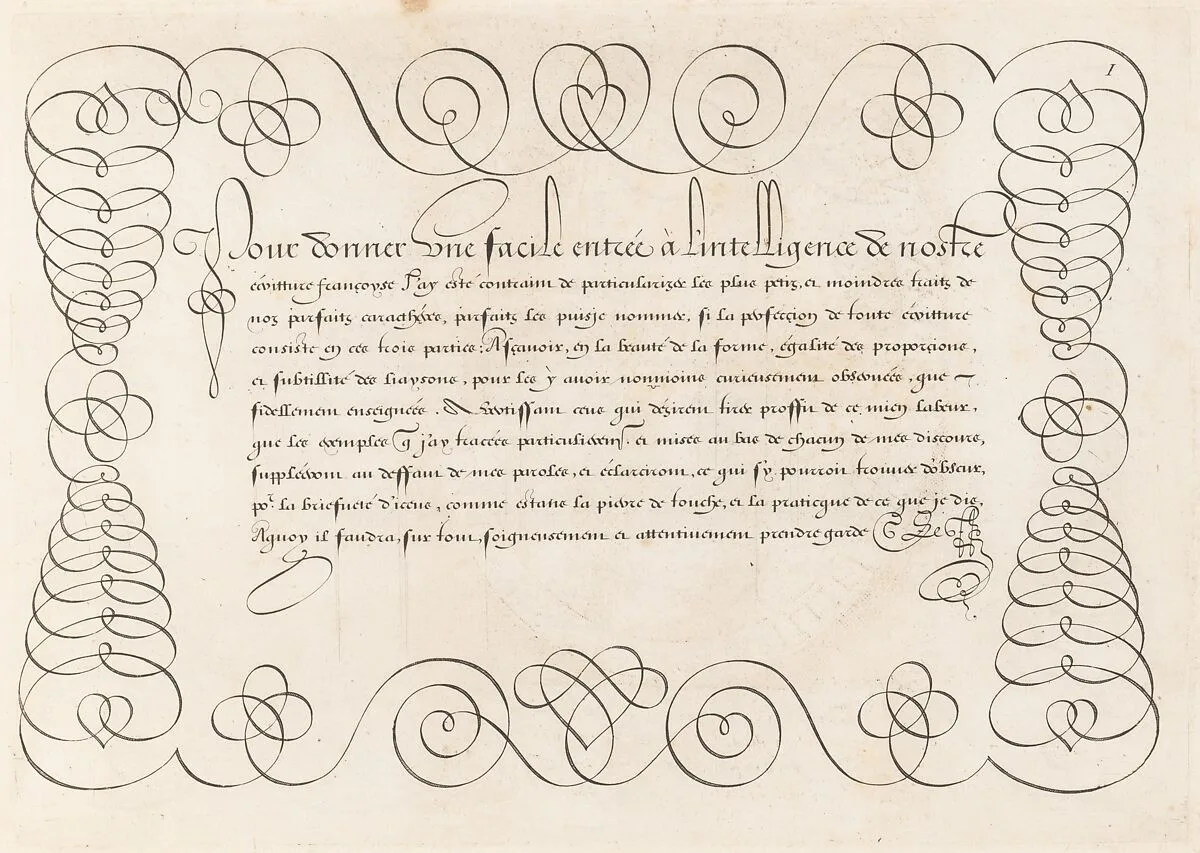 1
Pour donner Une facile entrée à l'intelligence de nostre
écritture françoyse J'ay esté contraint de particularizer les plus petiz, et moindres traitz de
noz parfaitz caracthéres, parfaitz les puisje nommer, si la perfection de toute écritture
consiste en ces trois parties: Asçavoir, en la beauté de la forme, égalité des proporcions,
et subtillité des liaysons, pour les y avoir nonmoins curieusement observées, que
fidellement enseignées. Advertissant ceus qui désirent tirer proffit de ce mien labeur,
que les exemples q j'ay tracées particulierem̄t. et mises au bas de chacun de mes discours,
suppléeront au deffaut de mes paroles, et éclarciront, ce qui s'y pourroit trouver d'obscur,
por. la briefueté d'iceus, comme estans la pierre de touche, et la praticque de ce que je dis,
Aquoy il faudra, sur tout, soigneusement et attentivement prendre garde